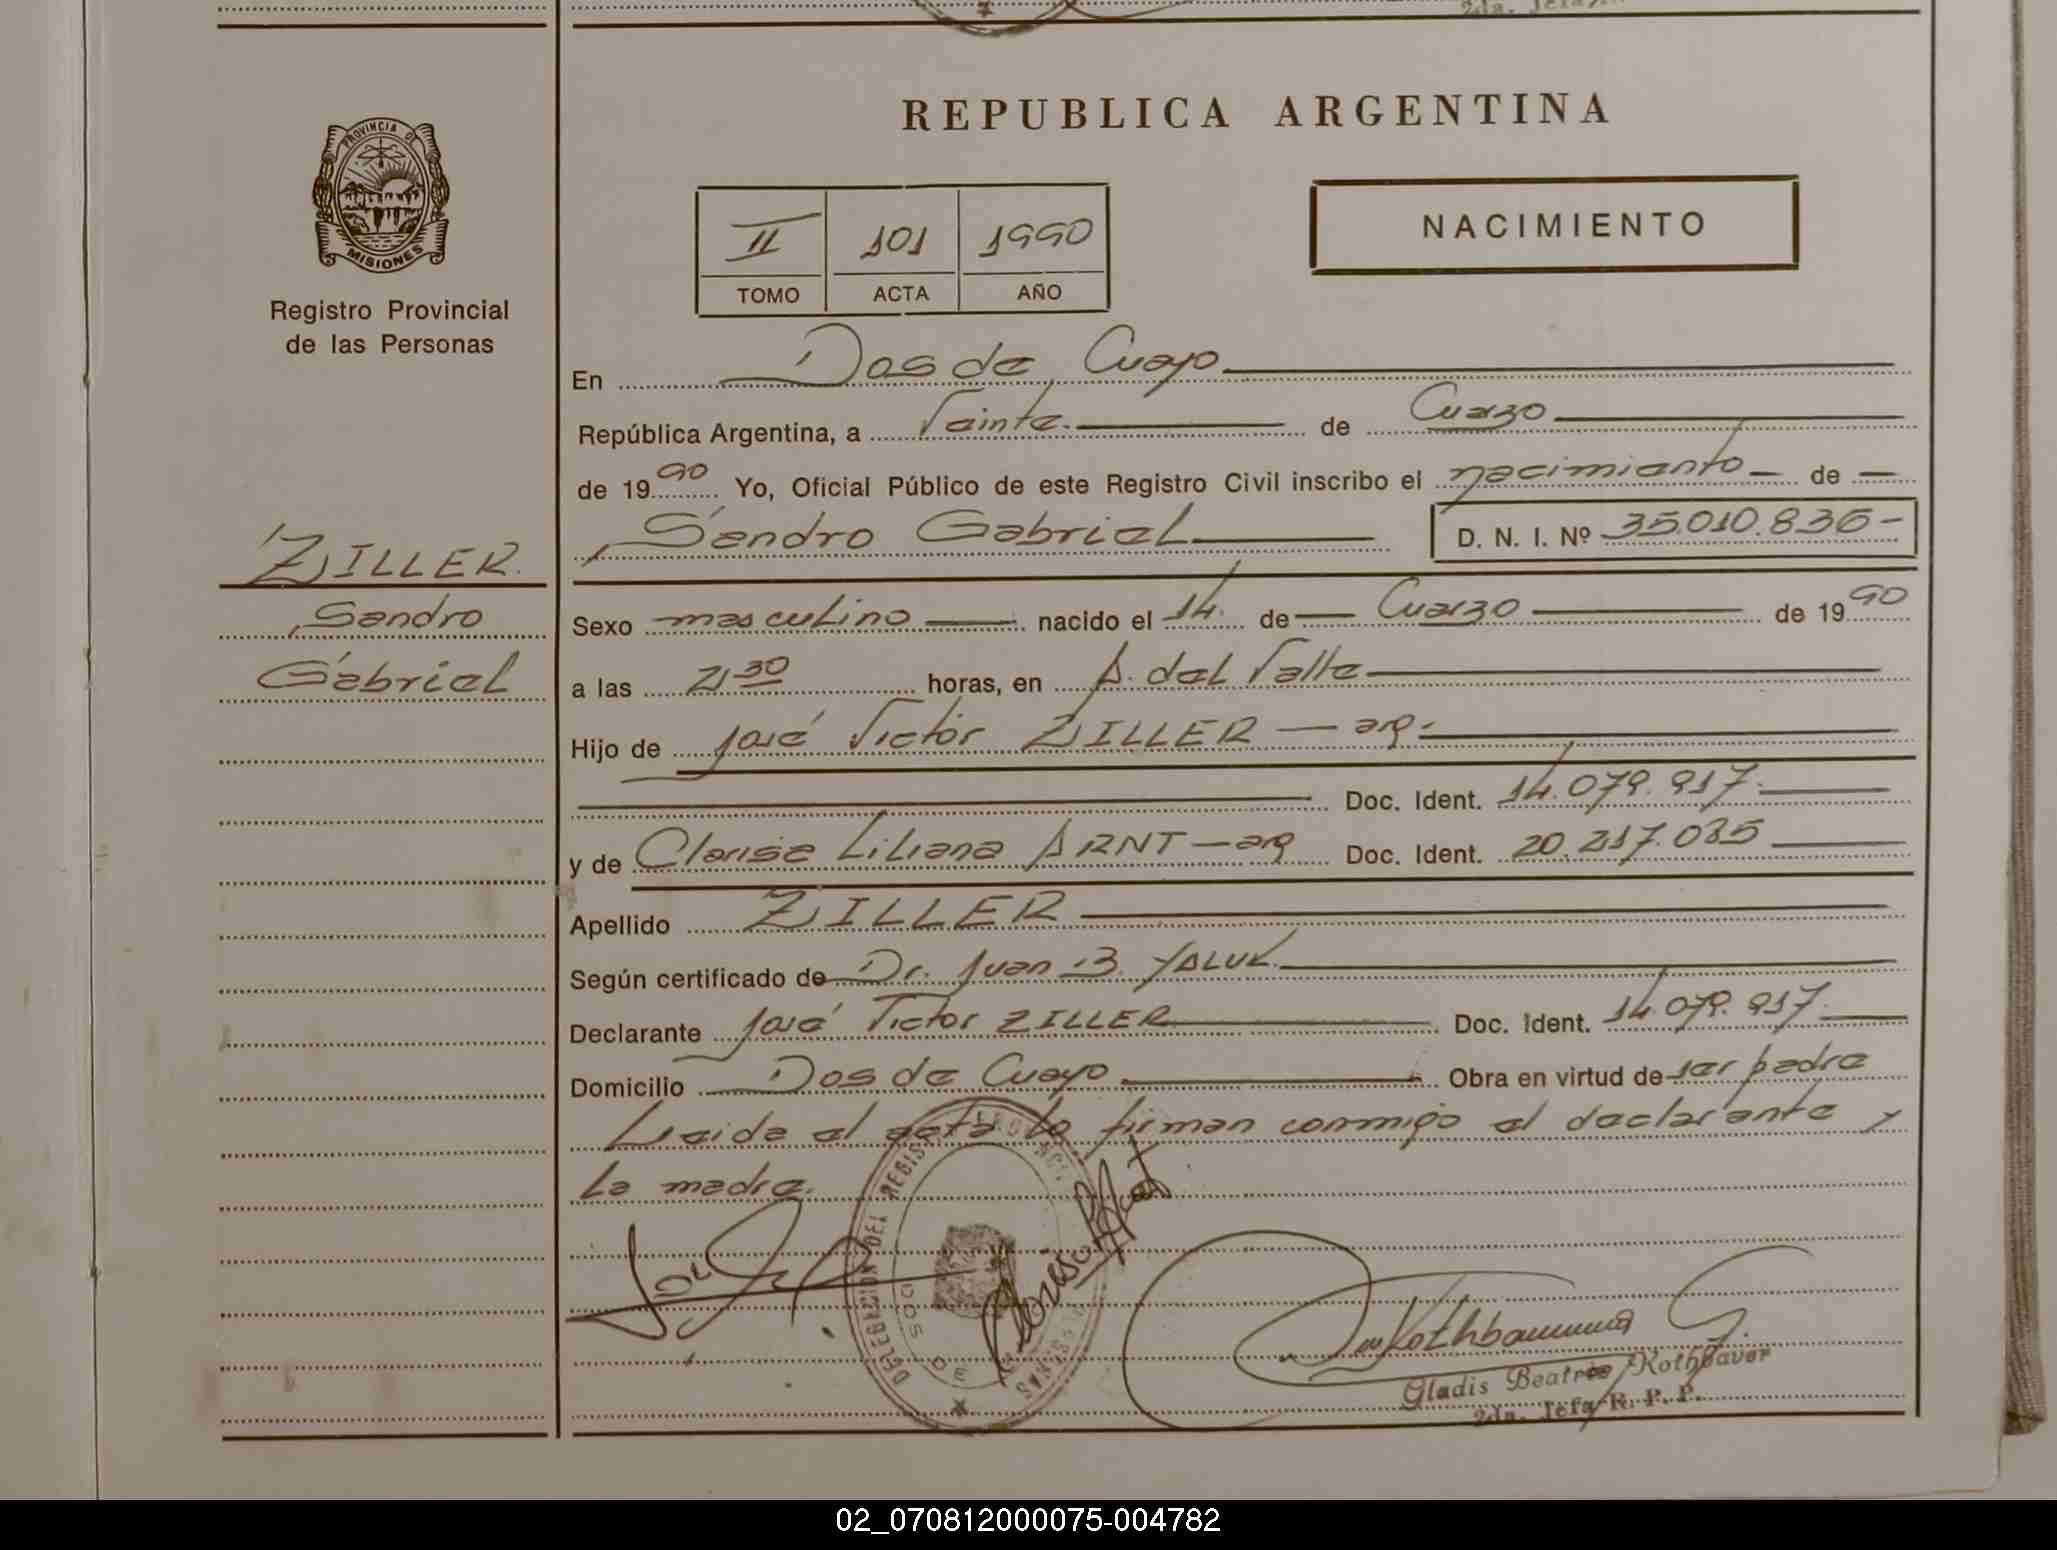 2da. Jefa
REPUBLICA ARGENTINA
PROVINCIA DE
MISIONES
Registro Provincial
de las Personas
NACIMIENTO
II 101 1990
TOMO ACTA AÑO
En Dos de Mayo
República Argentina, a Veinte de Marzo
de 1990 Yo, Oficial Público de este Registro Civil inscribo el nacimiento de
Sandro Gabriel D. N. I. Nº 35.010.836-
ZILLER
Sandro
Gabriel
Sexo masculino nacido el 14 de Marzo de 1990
a las 21 30 horas, en A. del Valle
Hijo de José Victor ZILLER - arg.
Doc. Ident. 14.079.917.
y de Clarise Liliana ARNT - arg Doc. Ident. 20.217.035
Apellido ZILLER
Según certificado de Dr. Juan B. YALUK.
Declarante José Victor ZILLER Doc. Ident. 14.079.917.
Domicilio Dos de Mayo Obra en virtud de ser padre
Leida el acta la firman conmigo el declarante y
la madre.
DELEGACION DEL REGISTRO
Gladis Beatriz Kothbaver
2da. Jefa R. P. P.
02_070812000075-004782